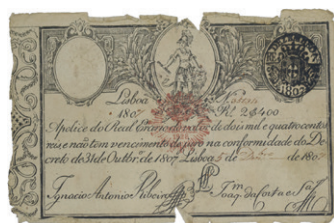 Lisboa N.
1807 Rs. 2$400
Apolice do Real Erario do valor de dois mil e quatro centos
reis e não tem vencimento de juro na conformidade do De
creto de 31 de Outbr.º de 1807 Lisboa 5 de de 1807
Ignacio Antonio Ribeiro Joaq. da Costa e Sa